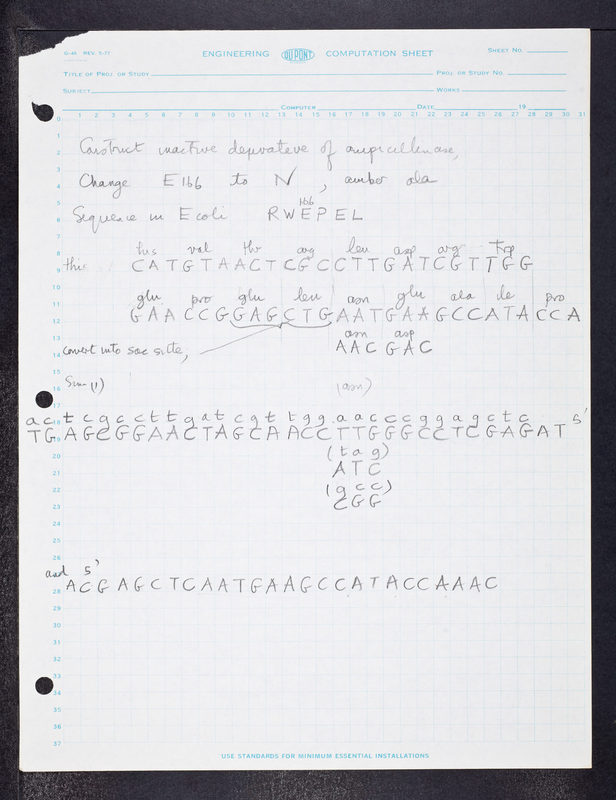 G-48 REV. 5-77
ENGINEERING DU PONT COMPUTATION SHEET
SHEET NO.
TITLE OF PROJ. OR STUDY
PROJ. OR STUDY NO.
SUBJECT
WORKS
COMPUTER
DATE
19
0 1 2 3 4 5 6 7 8 9 10 11 12 13 14 15 16 17 18 19 20 21 22 23 24 25 26 27 28 29 30 31
Construct inactive derivative of ampicillinase,
Change E166 to N, amber ala
166
Sequence in E coli RWEPEL
his val thr arg leu asp arg trp
this CATGTAACTCGCCTTGATCGTTGG
glu pro glu leu asn glu ala ile pro
GAACCGGAGCTGAATGAAGCCATACCA
asn asp
convert into sac site,
AACGAC
(1)
(asn)
actcgccttgatcgttgg.aacccggagctc 5'
TGAGCGGAACTAGCAACCTTGGGCCTCGAGAT
(tag)
ATC
(gcc)
CGG
and 5'
ACGAGCTCAATGAAGCCATACCAAAC
USE STANDARDS FOR MINIMUM ESSENTIAL INSTALLATIONS